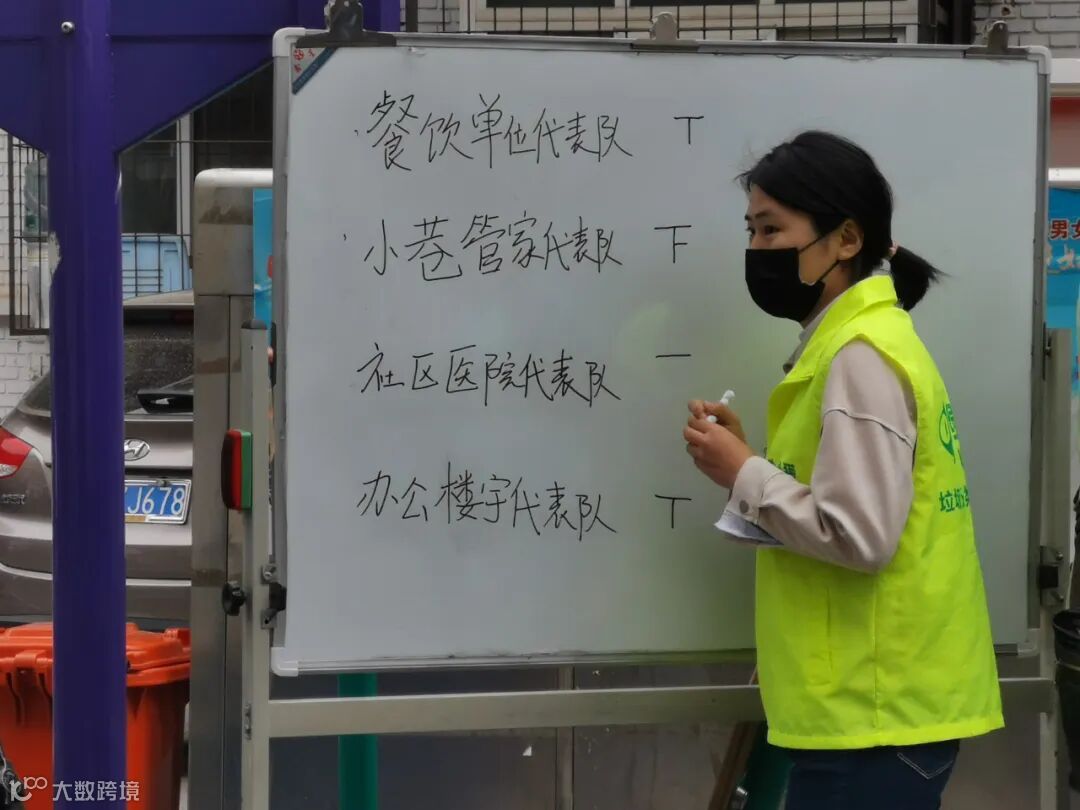 餐饮单位代表队 T
小苍管家代表队 下
社区医院代表队 一
办公楼宇代表队 T
J678
男女
垃圾
大数跨境